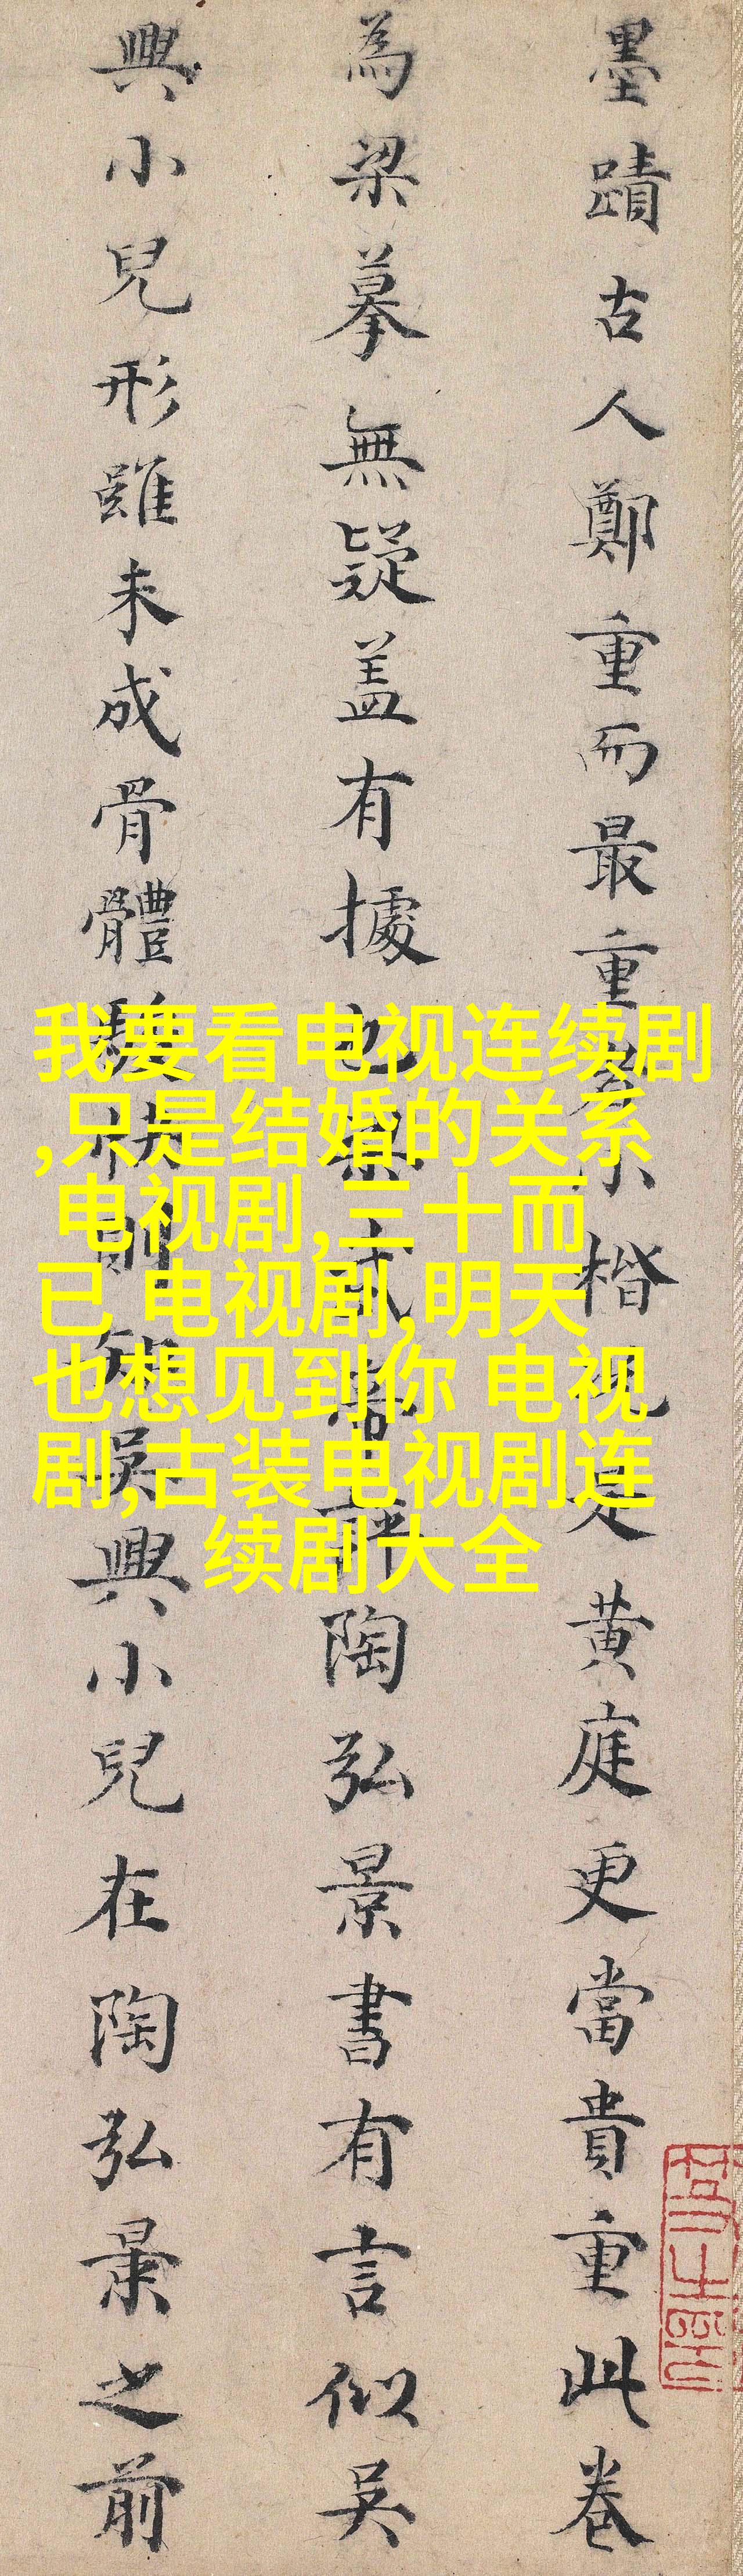 墨蹟古人鄭重而最重小楷况是黄庭更當貴重此卷
為梁摹無疑盖有據也梁武帝評陶弘景書有言似吳
興小兒形雖未成骨體駿快則知吳興小兒在陶弘景之前
我要看电视连续剧
,只是结婚的关系
电视剧,三十而
已 电视剧,明天
也想见到你 电视
剧,古装电视剧连
续剧大全